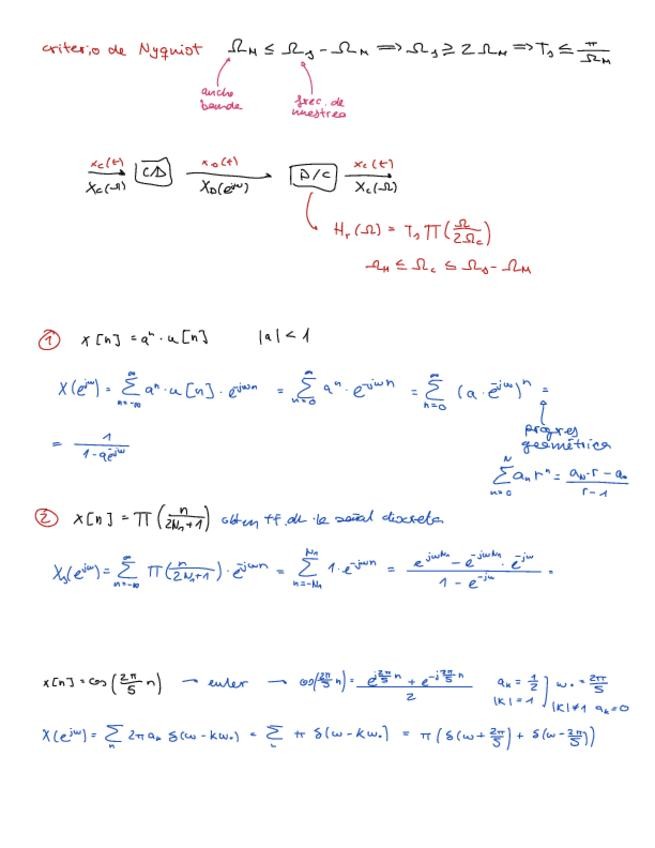 criterio de Nyquist Ω_M ≤ Ω_s - Ω_M ⟹ Ω_s ≥ 2Ω_M ⟹ T_s ≤ π/Ω_M
ancho banda
frec. de muestreo
x_c(t) x_D(t) x_c(t)
C/D D/C
X_c(Ω) X_D(e^{jω}) X_c(Ω)
H_r(Ω) = T_s Π(Ω/2Ω_c)
Ω_M ≤ Ω_c ≤ Ω_s - Ω_M
① x[n] = a^n · u[n] |a| < 1
X(e^{jω}) = ∑_{n=-∞}^{∞} a^n · u[n] · e^{-jωn} = ∑_{n=0}^{∞} a^n · e^{-jωn} = ∑_{n=0}^{∞} (a · e^{-jω})^n =
progres geométrica
= 1/(1 - a e^{-jω})
∑_{n=0}^{N} a_n r^n = (a_N · r - a_0)/(r - 1)
② x[n] = Π(n/(2N_1+1)) obten tf. de la señal discreta
X_s(e^{jω}) = ∑_{n=-∞}^{∞} Π(n/(2N_1+1)) · e^{-jωn} = ∑_{n=-N_1}^{N_1} 1 · e^{-jωn} = (e^{jωN_1} - e^{-jωN_1} · e^{-jω})/(1 - e^{-jω}) =
x[n] = cos(2π/5 n) → euler → cos(2π/5 n) = (e^{j2π/5 n} + e^{-j2π/5 n})/2 a_k = 1/2 |k| = 1 ω_0 = 2π/5 |k| ≠ 1 a_k = 0
X(e^{jω}) = ∑ 2π a_k δ(ω - kω_0) = ∑ π δ(ω - kω_0) = π(δ(ω + 2π/5) + δ(ω - 2π/5))